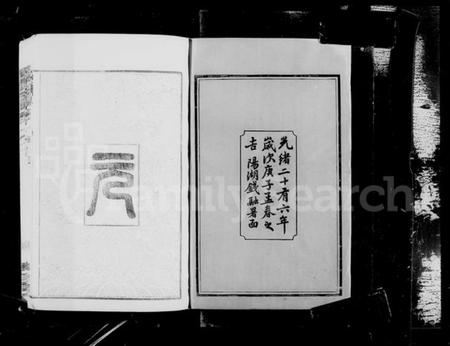 光緒二十有六年
歲次庚子孟春之
吉陽湖錢融署面
元
FamilySearch